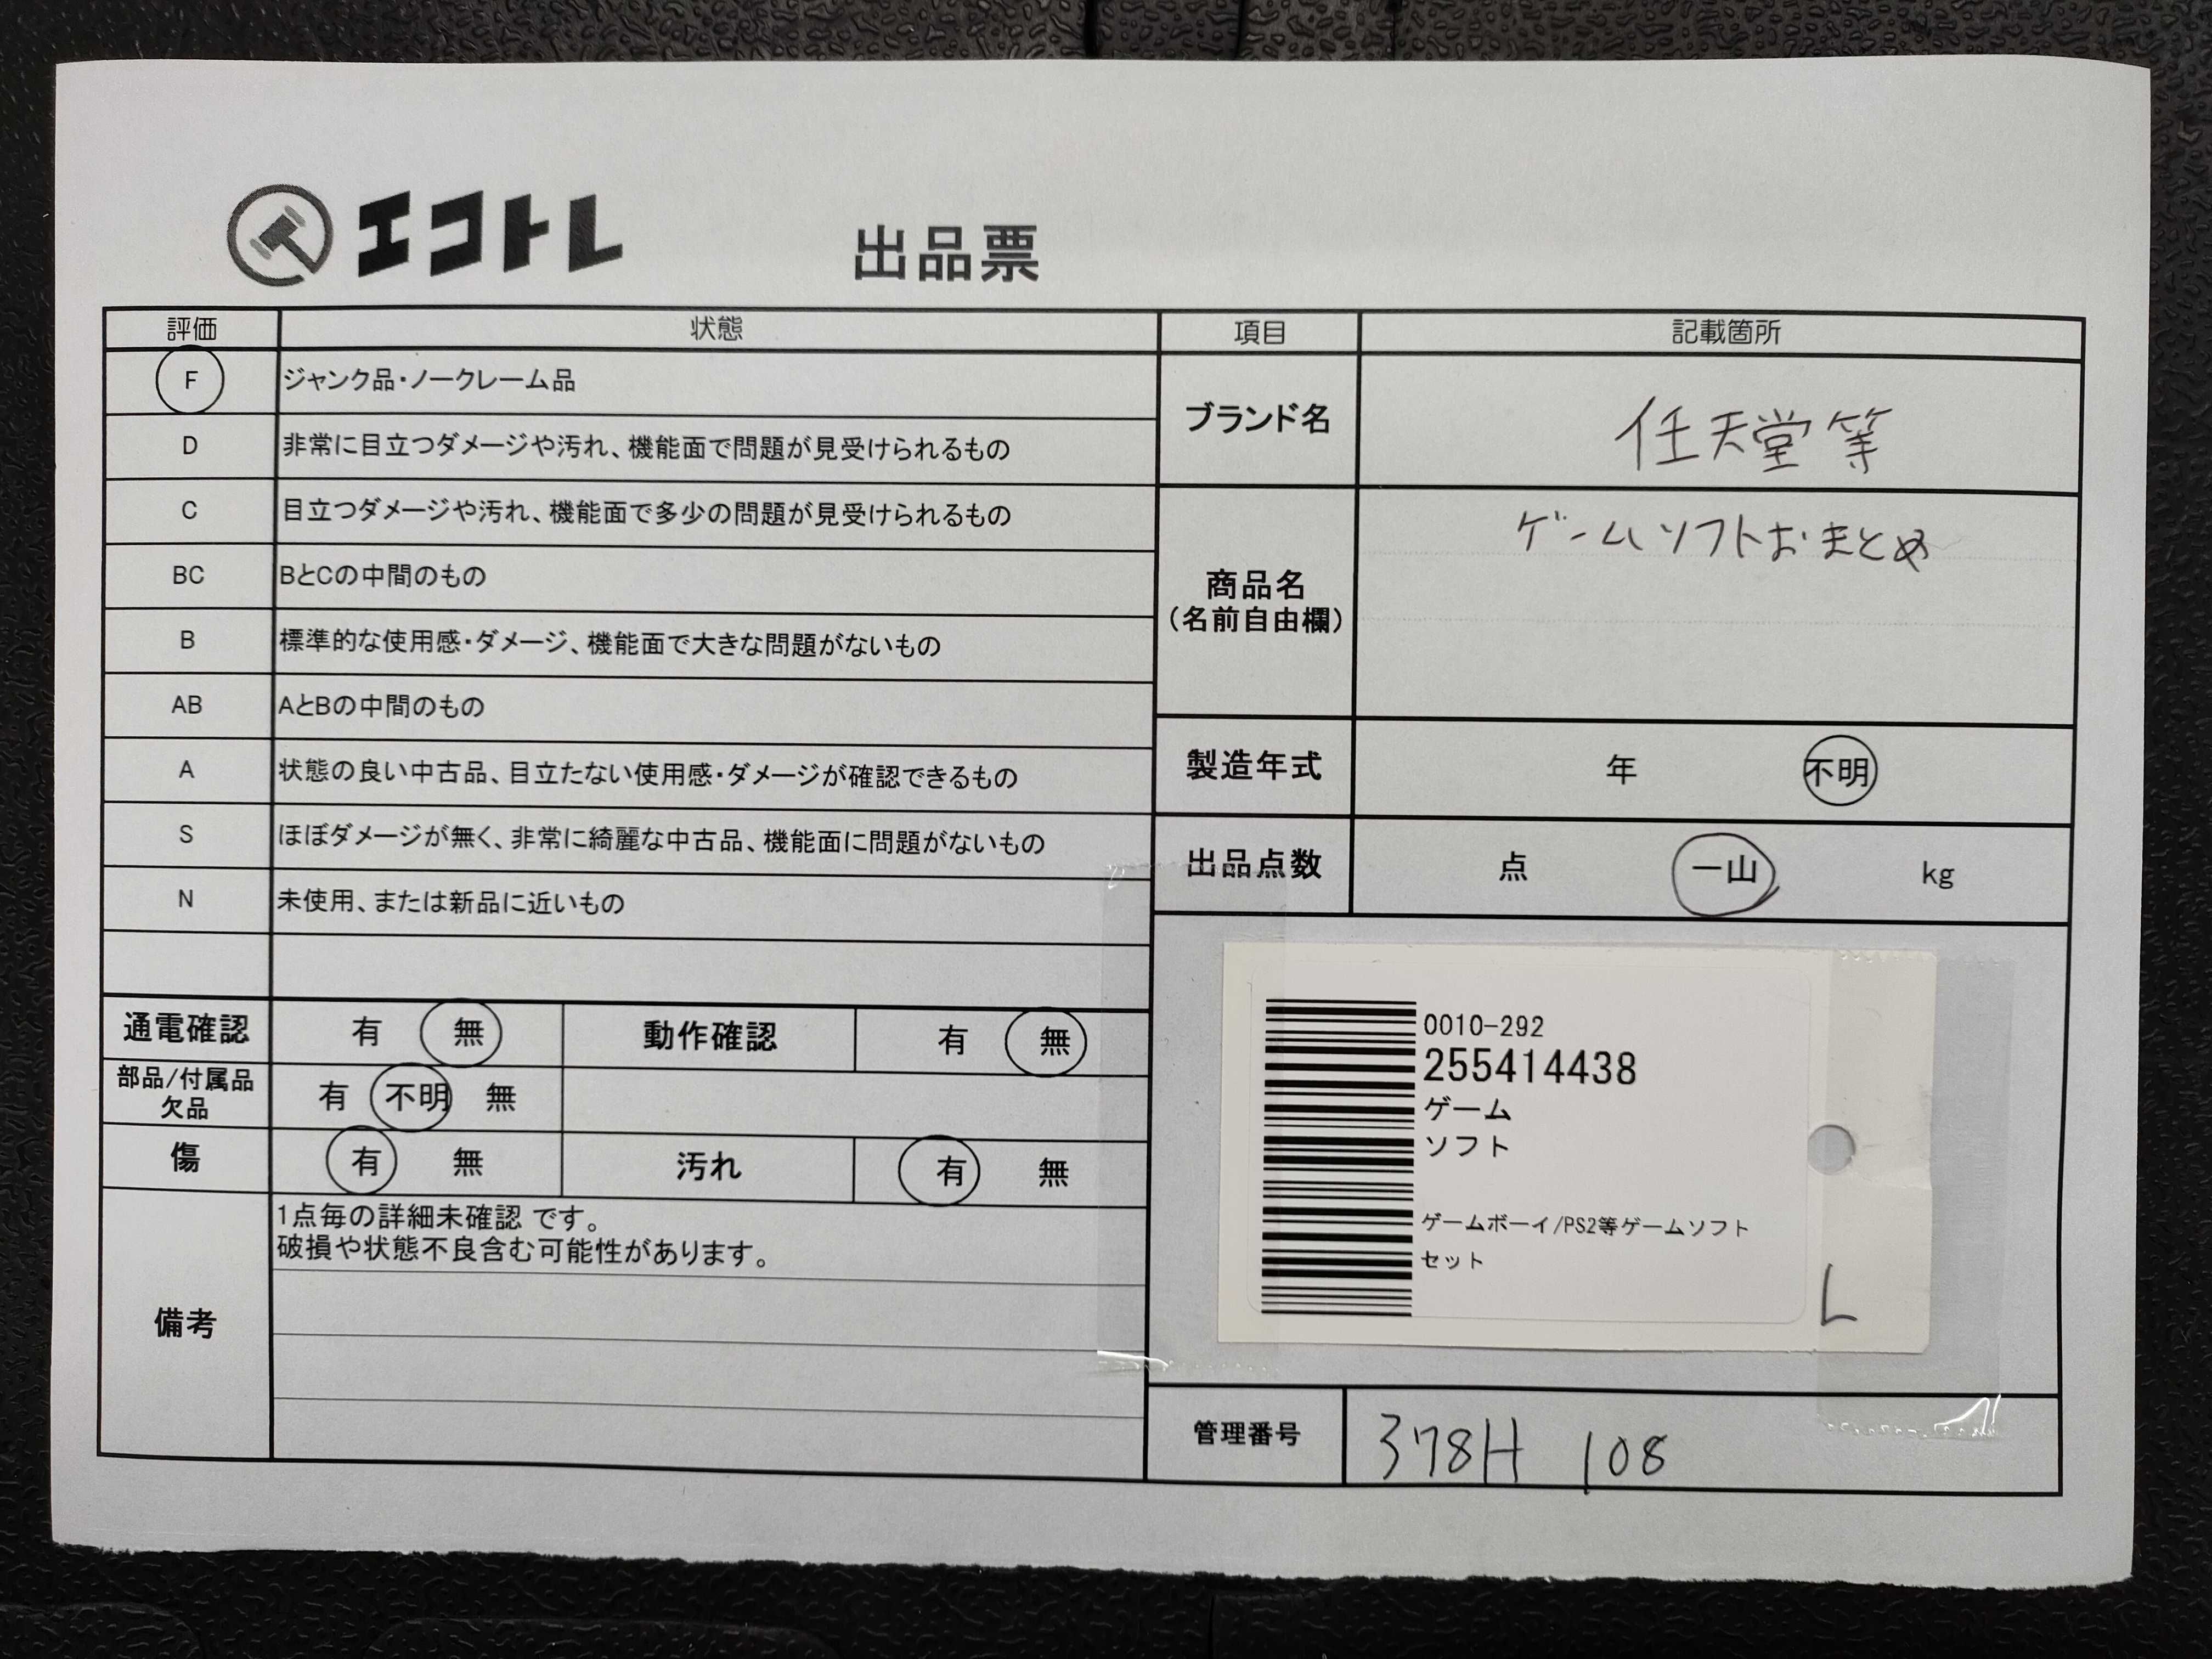 エコトレ
出品票
評価 状態
F ジャンク品・ノークレーム品
D 非常に目立つダメージや汚れ、機能面で問題が見受けられるもの
C 目立つダメージや汚れ、機能面で多少の問題が見受けられるもの
BC BとCの中間のもの
B 標準的な使用感・ダメージ、機能面で大きな問題がないもの
AB AとBの中間のもの
A 状態の良い中古品、目立たない使用感・ダメージが確認できるもの
S ほぼダメージが無く、非常に綺麗な中古品、機能面に問題がないもの
N 未使用、または新品に近いもの
通電確認 有 無 動作確認 有 無
部品/付属品 欠品 有 不明 無
傷 有 無 汚れ 有 無
備考
1点毎の詳細未確認 です。
破損や状態不良含む可能性があります。
項目 記載箇所
ブランド名 任天堂等
商品名 ゲームソフトおまとめ
(名前自由欄)
製造年式 年 不明
出品点数 点 一山 kg
0010-292
255414438
ゲーム
ソフト
ゲームボーイ/PS2等ゲームソフト
セット
L
管理番号 378H 108